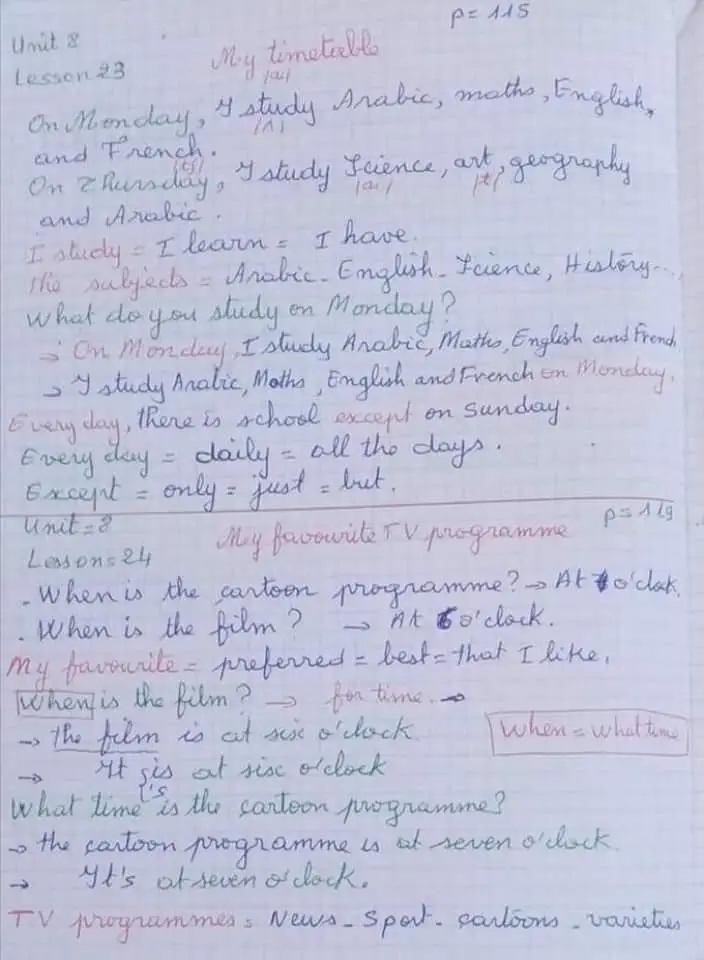 p=115
Unit 8
My timetable
Lesson 23
/ai/
On Monday, I study Arabic, maths, English,
/ʌ/
and French.
/tʃ/
On Thursday, I study Science, art, geography
/ai/ /t/
and Arabic.
I study = I learn = I have.
the subjects = Arabic - English - Science, History...,
What do you study on Monday?
→ On Monday, I study Arabic, Maths, English and French
→ I study Arabic, Maths, English and French on Monday.
Every day, there is school except on Sunday.
Every day = daily = all the days.
Except = only = just = but.
Unit = 8
p=119
My favourite TV programme
Lesson = 24
. When is the cartoon programme? → At 7 o'clock.
. When is the film? → At 6 o'clock.
My favourite = preferred = best = that I like.
When is the film? → for time. →
→ the film is at six o'clock
When = what time
→ It is at six o'clock
's
What time is the cartoon programme?
→ the cartoon programme is at seven o'clock
→ It's at seven o'clock.
TV programmes = News - Sport - cartoons - varieties